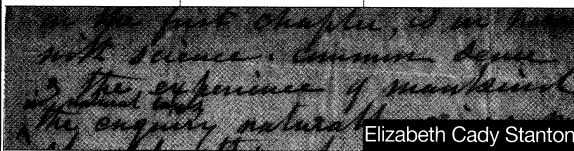 in the first chapter, is in
with science, common sense
& the experience of mankind
in natural laws
the enquiry naturally
Elizabeth Cady Stanton